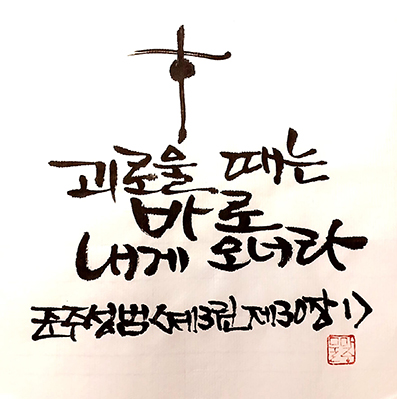 괴로울 때는
바로
내게 오너라
준주성범<제3권 제30장 1>